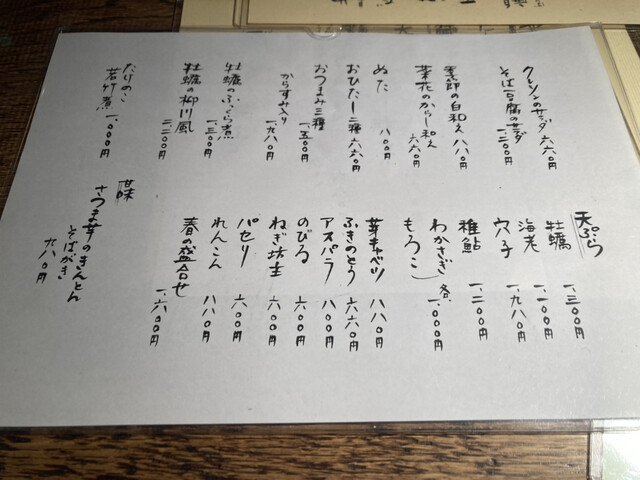 クレソンのサラダ 六六〇円
そば豆腐のサラダ 一、二〇〇円
季節の白和え 八八〇円
菜花のからし和え 六六〇円
ぬた 八〇〇円
おひたし二種 六六〇円
おつまみ三種 一、五〇〇円
からすみ入り 一、九八〇円
牡蠣のふっくら煮 一、三〇〇円
牡蠣の柳川風 二、二〇〇円
たけのこ
若竹煮 一、〇〇〇円
天ぷら
牡蠣 一、三〇〇円
海老 一、一〇〇円
穴子 一、九八〇円
稚鮎 一、二〇〇円
わかさぎ 各
もろこ 一、〇〇〇円
芽キャベツ 八八〇円
ふきのとう 六六〇円
アスパラ 八〇〇円
のびる 六〇〇円
ねぎ坊主 六〇〇円
パセリ 六〇〇円
れんこん 八八〇円
春の盛合せ 一、六〇〇円
甘味
さつま芋のきんとん
そばがき
九八〇円